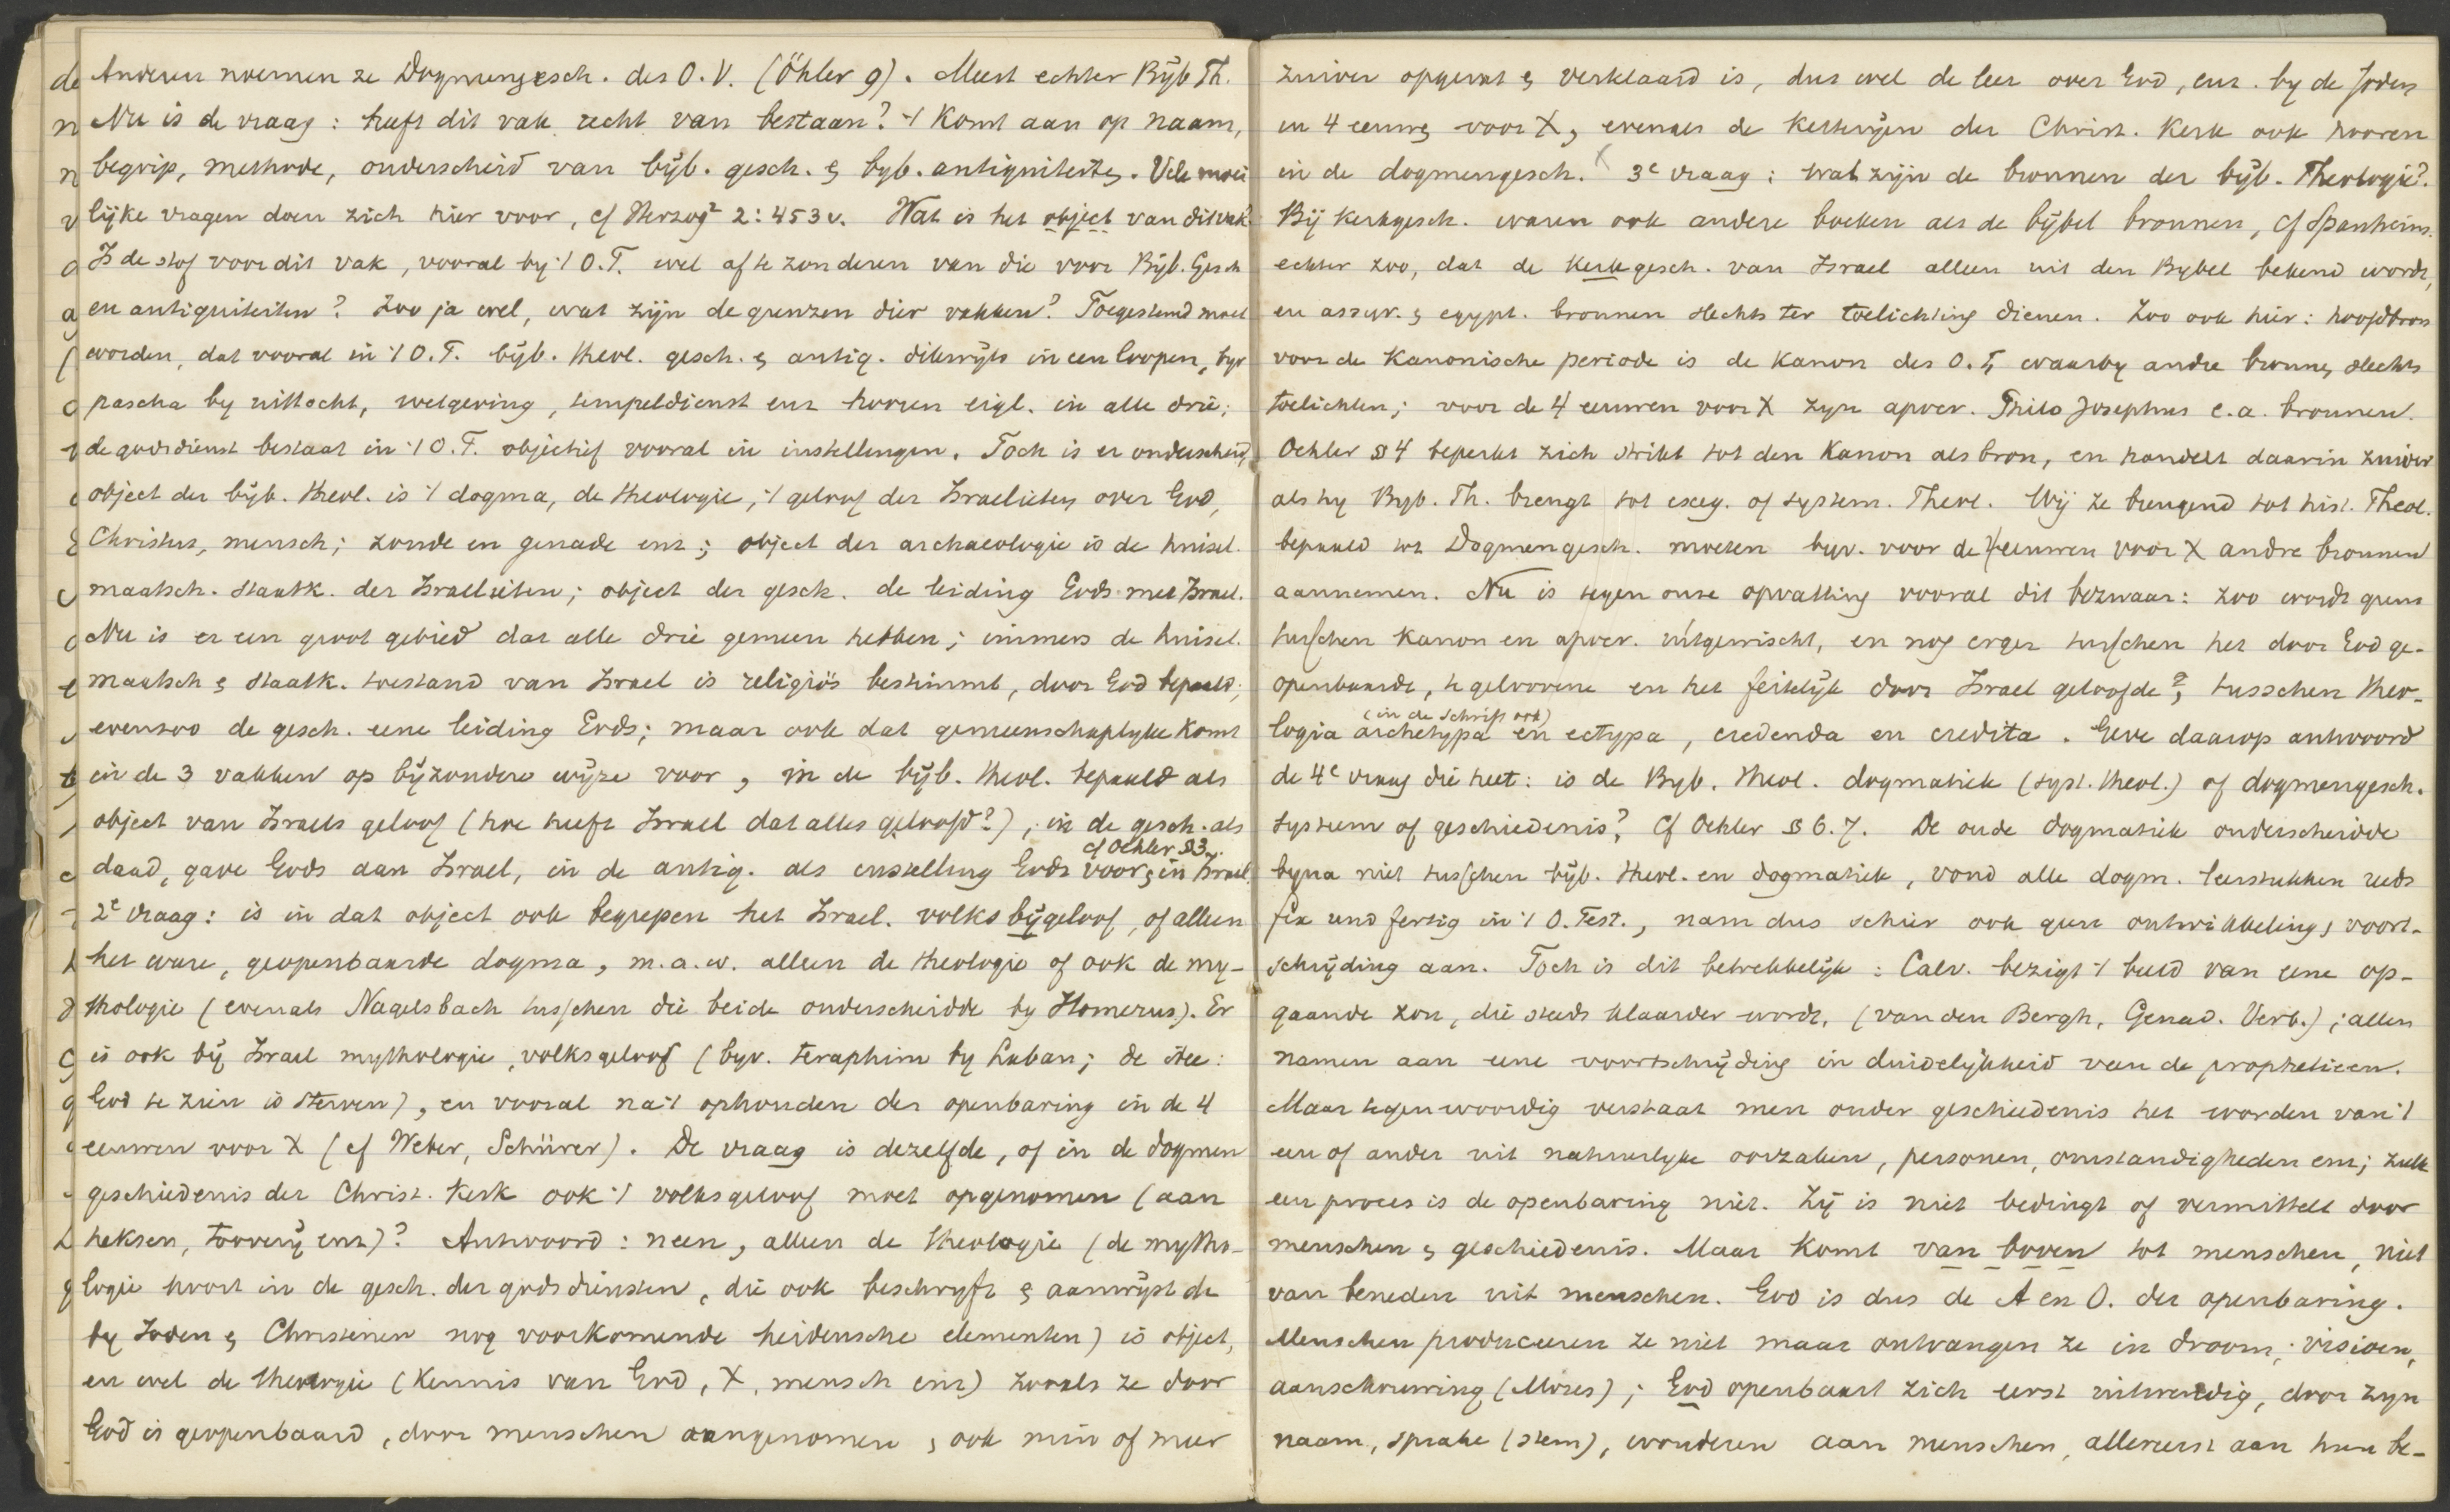 Anderen noemen ze Dogmengesch. des O.V. (Öhler 9). Meest echter Bijb Th.
Nu is de vraag: heeft dit vak recht van bestaan? 't Komt aan op naam,
begrip, methode, onderscheid van bijb. gesch. & byb. antiquiteiten. Vele moei
lijke vragen doen zich hier voor, cf Herzog² 2:453v. Wat is het object van dit vak?
Is de stof voor dit vak, vooral by 't O.T. wel af te zonderen van die voor Bijb. Gesch
en antiquiteiten? Zoo ja wel, wat zijn de grenzen dier vakken? Toegestemd moet
worden, dat vooral in 't O.T. bijb. theol. gesch. & antiq. dikwijls in een loopen, byv
pascha by uittocht, wetgeving, tempeldienst enz hooren eigl. in alle drie;
de godsdienst bestaat in 't O.T. objectief vooral in instellingen. Toch is er onderscheid,
object der bijb. theol. is 't dogma, de theologie, 't geloof der Israelieten over God,
Christus, mensch; zonde en genade enz; object der archaeologie is de huisel.
maatsch. staatk. der Israelieten; object der gesch. de leiding Gods met Israel.
Nu is er een groot gebied dat alle drie gemeen hebben; immers de huisel.
maatsch & staatk. toestand van Israel is religiös bestimmt, door God bepaald;
evenzoo de gesch. eene leiding Gods; maar ook dat gemeenschaplyke komt
in de 3 vakken op bijzondere wijze voor, in de bijb. theol. bepaald als
object van Israels geloof (hoe heeft Israel dat alles geloofd?), in de gesch. als
cf Oehler § 3.
daad, gave Gods aan Israel, in de antiq. als instelling Gods voor & in Israel.
2e vraag: is in dat object ook begrepen het Israel. volksbijgeloof, of alleen
het ware, geopenbaarde dogma, m.a.w. alleen de theologie of ook de my-
thologie (evenals Nagelsbach tusschen die beide onderscheidde by Homerus). Er
is ook bij Israel mythologie, volksgeloof (byv. teraphim by Laban; de idee:
God te zien is sterven), en vooral na 't ophouden der openbaring in de 4
eeuwen voor X (cf Weber, Schürer). De vraag is dezelfde, of in de dogmen
geschiedenis der Christ. Kerk ook 't volksgeloof moet opgenomen (aan
heksen, toovery enz)? Antwoord: neen, alleen de theologie (de mytho-
logie hoort in de gesch. der godsdiensten, die ook beschryft & aanwijst de
by Joden & Christenen nog voorkomende heidensche elementen) is object,
en wel de theologie (kennis van God, X, mensch enz) zooals ze door
God is geopenbaard, door menschen aangenomen, ook min of meer
zuiver opgevat & verklaard is, dus wel de leer over God, enz. by de Joden
in 4 eeuwen voor X, evenals de ketteryen der Christ. Kerk ook hooren
in de dogmengesch. 3e vraag: wat zijn de bronnen der bijb. Theologie?
Bij kerkgesch. waren ook andere boeken als de bijbel bronnen, cf Spanheim.
echter zoo, dat de kerkgesch. van Israel alleen uit den Bybel bekend wordt,
en assyr. & egypt. bronnen slechts ter toelichting dienen. Zoo ook hier: hoofdbron
voor de Kanonische periode is de kanon des O.T, waarby andre bronnen slechts
toelichten; voor de 4 eeuwen voor X zyn apocr. Philo Josephus e.a. bronnen.
Oehler § 4 beperkt zich strikt tot den Kanon als bron, en handelt daarin zuiver
als hy Byb. Th. brengt tot exeg. of system. Theol. Wij ze brengend tot hist. Theol.
bepaald tot Dogmengesch. moeten byv. voor de 4 eeuwen voor X andre bronnen
aannemen. Nu is tegen onze opvatting vooral dit bezwaar: zoo wordt grens
tusschen kanon en apocr. uitgewischt, en nog erger tusschen het door God ge-
openbaarde, te gelooven en het feitelijk door Israel geloofde?, tusschen theo-
(in de Schrift ook)
logia archetypa en ectypa, credenda en credita. Geve daarop antwoord
de 4e vraag die heet: is de Byb. theol. dogmatiek (syst. theol.) of dogmengesch.
systeem of geschiedenis? Cf Oehler § 6.7. De oude dogmatiek onderscheidde
byna niet tusschen bijb. theol. en dogmatiek, vond alle dogm. leerstukken reeds
fix und fertig in 't O. Test., nam dus schier ook geen ontwikkeling, voort-
schrijding aan. Toch is dit betrekkelijk: Calv. bezigt 't beeld van eene op-
gaande zon, die steeds klaarder wordt. (van den Bergh, Genad. Verb.); allen
namen aan eene voortschrijding in duidelijkheid van de prophetieen.
Maar tegenwoordig verstaat men onder geschiedenis het worden van 't
een of ander uit natuurlyke oorzaken, personen, omstandigheden enz; zulk
een proces is de openbaring niet. Zij is niet bedingt of vermittelt door
menschen & geschiedenis. Maar komt van boven tot menschen, niet
van beneden uit menschen. God is dus de A en O. der openbaring.
Menschen produceeren ze niet maar ontvangen ze in droom, visioen,
aanschouwing (Mozes); God openbaart zich eerst uitwendig, door zyn
naam, sprake (stem), wonderen aan menschen, allereerst aan hun be-